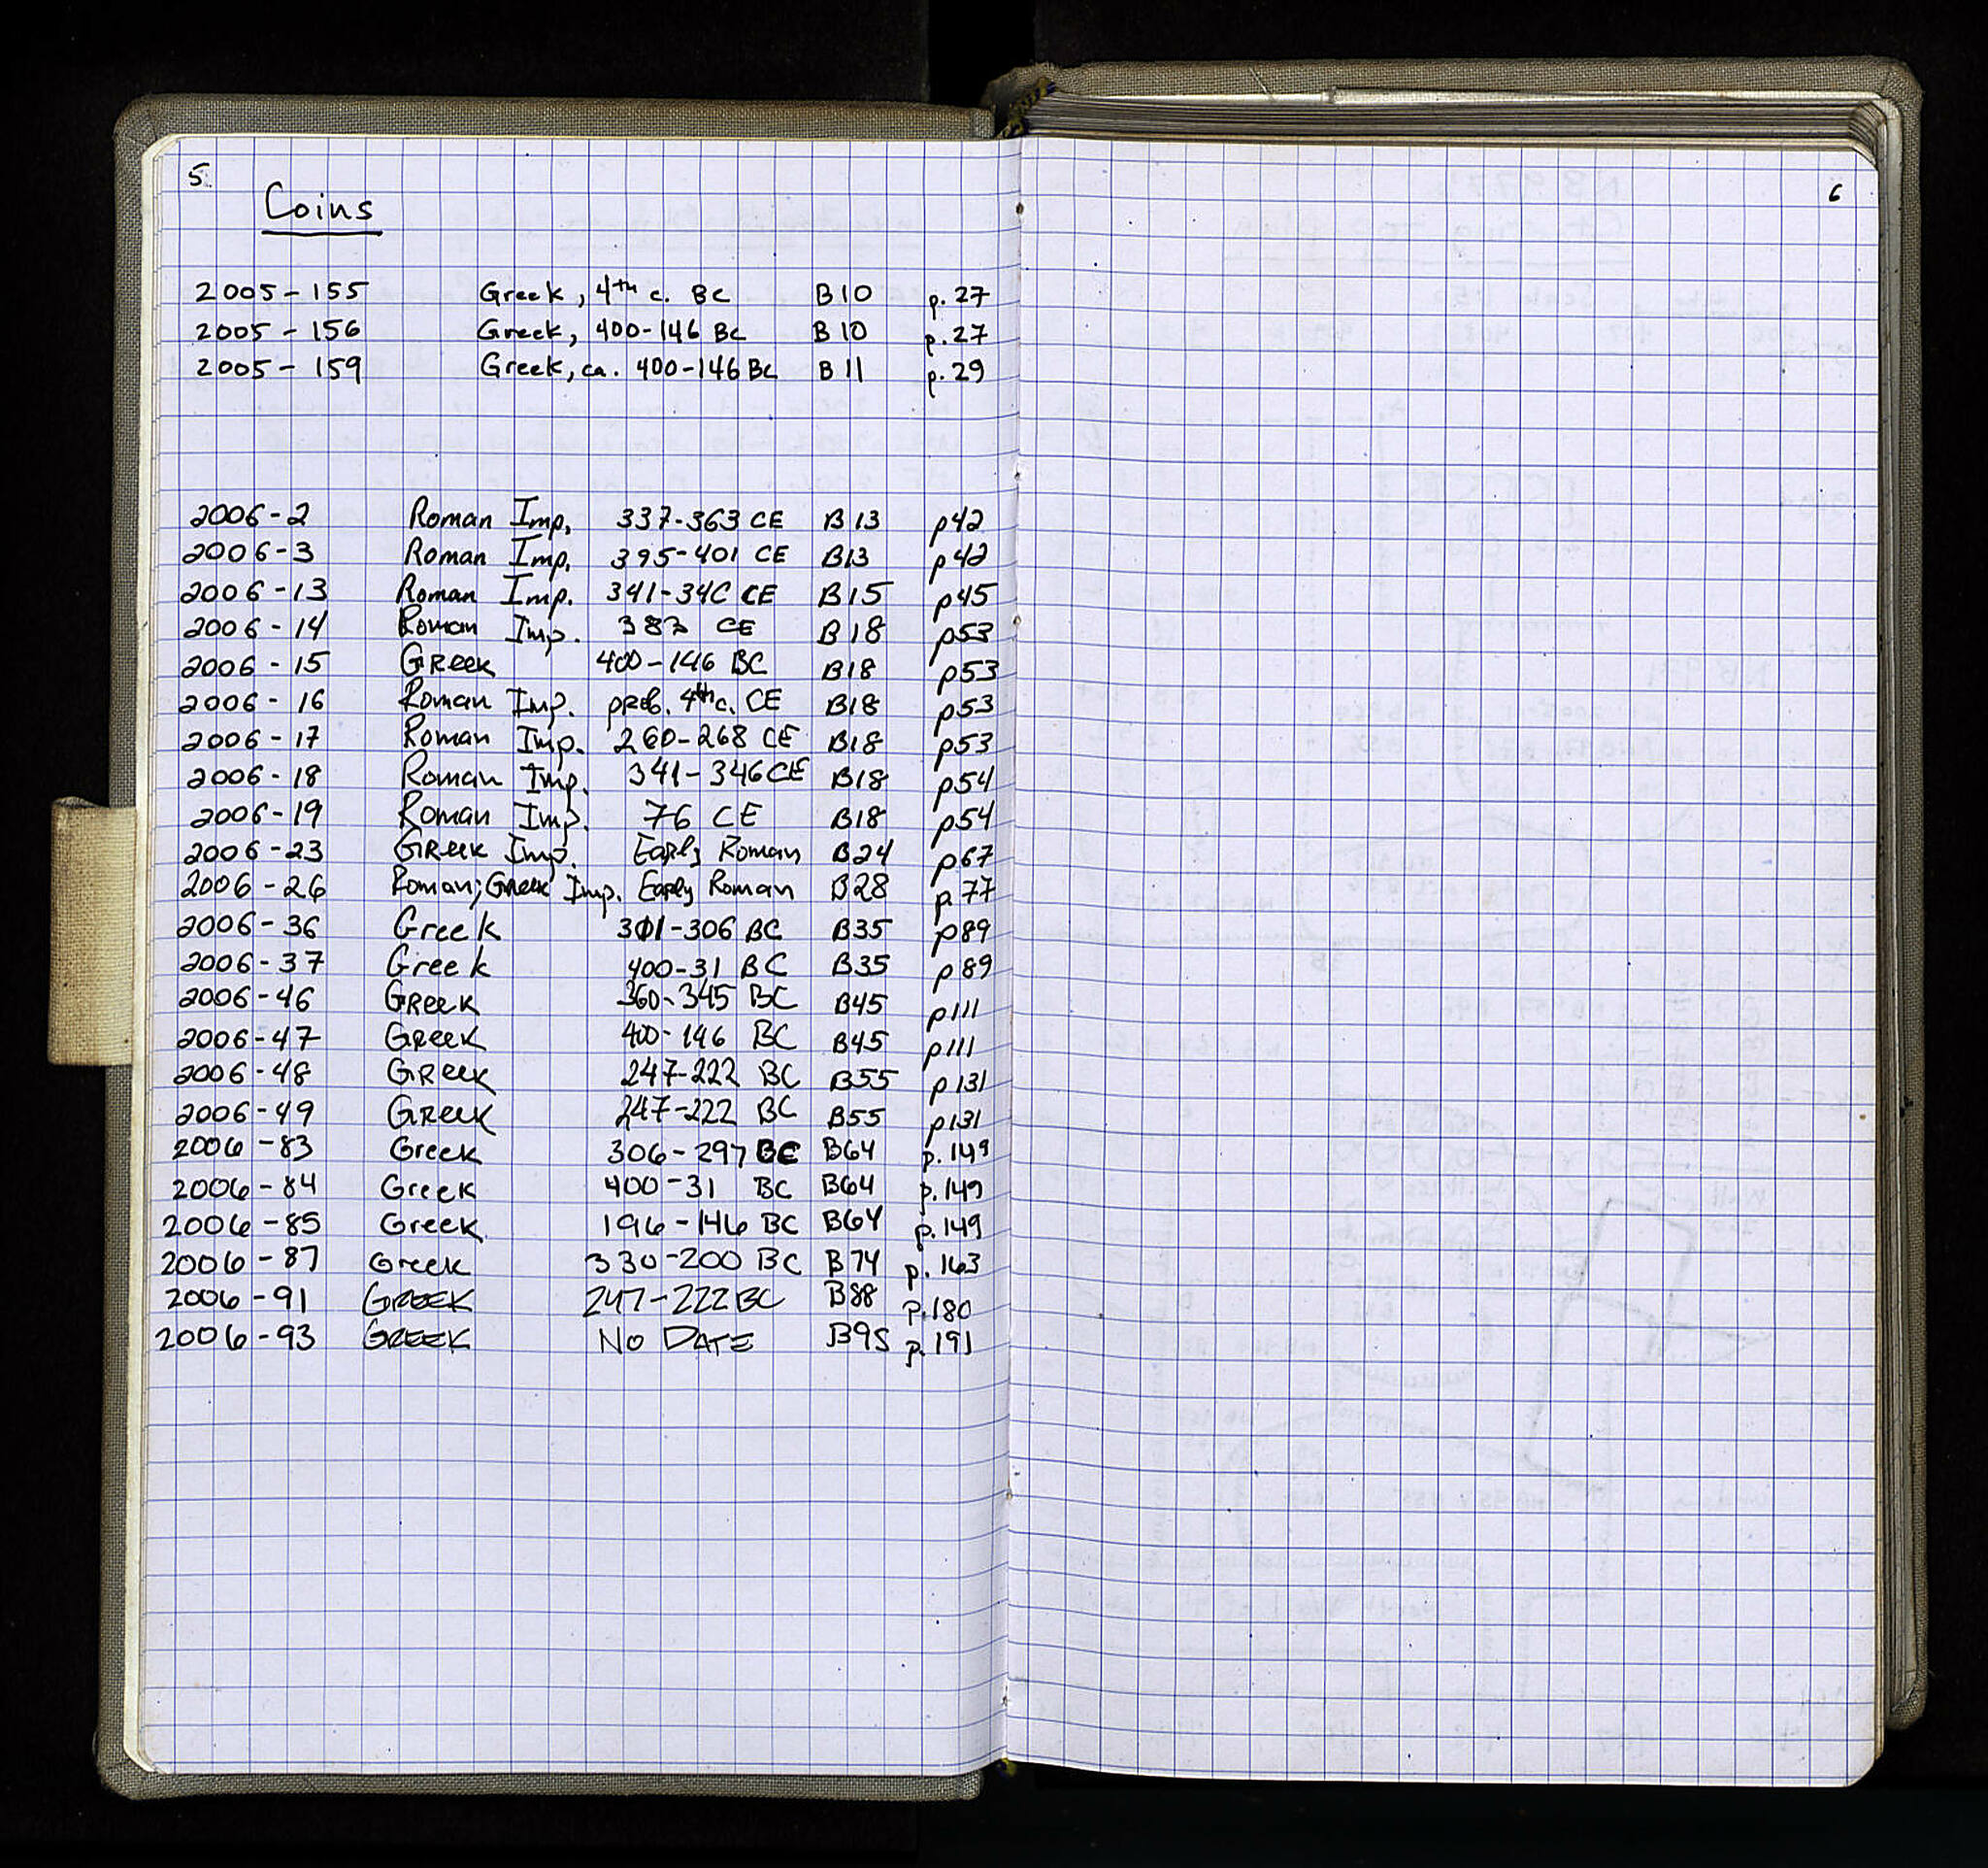 5
Coins
2005-155 Greek, 4th c. BC B10 p. 27
2005-156 Greek, 400-146 BC B10 p. 27
2005-159 Greek, ca. 400-146 BC B11 p. 29
2006-2 Roman Imp. 337-363 CE B13 p42
2006-3 Roman Imp. 395-401 CE B13 p42
2006-13 Roman Imp. 341-346 CE B15 p45
2006-14 Roman Imp. 383 CE B18 p53
2006-15 Greek 400-146 BC B18 p53
2006-16 Roman Imp. prob. 4th c. CE B18 p53
2006-17 Roman Imp. 260-268 CE B18 p53
2006-18 Roman Imp. 341-346 CE B18 p54
2006-19 Roman Imp. 76 CE B18 p54
2006-23 Greek Imp. Early Roman B24 p67
2006-26 Roman; Greek Imp. Early Roman B28 p.77
2006-36 Greek 301-306 BC B35 p89
2006-37 Greek 400-31 BC B35 p89
2006-46 Greek 360-345 BC B45 p111
2006-47 Greek 400-146 BC B45 p111
2006-48 Greek 247-222 BC B55 p131
2006-49 Greek 247-222 BC B55 p131
2006-83 Greek 306-297 BC B64 p.149
2006-84 Greek 400-31 BC B64 p.149
2006-85 Greek 196-146 BC B64 p.149
2006-87 Greek 330-200 BC B74 p. 163
2006-91 GREEK 247-222 BC B88 p.180
2006-93 GREEK NO DATE B95 p.191
6